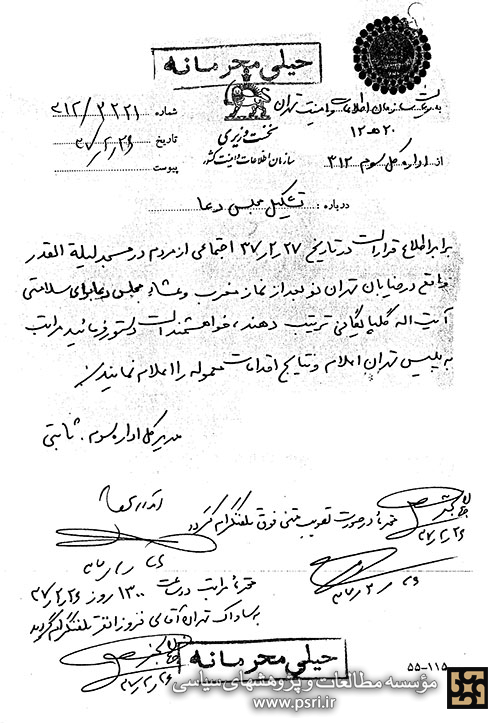 خیلی محرمانه
به: ریاست سازمان اطلاعات و امنیت تهران
۲۰ ه‍ ۱۲
از: اداره کل سوم ۳۱۲
نخست وزیری
سازمان اطلاعات و امنیت کشور
شماره ۳۱۲/۳۲۲۱
تاریخ ۳۷/۲/۲۶
پیوست
درباره: تشکیل مجلس دعا
برابر اطلاع قرار است در تاریخ ۳۷/۲/۲۷ اجتماعی از مردم در مسجد لیلة القدر
واقع در خیابان تهران نو بعد از نماز مغرب و عشاء مجلس دعا برای سلامتی
آیت اله گلپایگانی ترتیب دهند، خواهشمند است دستور فرمائید مراتب
به پلیس تهران اعلام و نتایج اقدامات معموله را اعلام نمایند
مدیر کل اداره سوم. ثابتی
محترماً در صورت تصویب متن فوق تلفنگرام گردد
۳۷/۲/۲۶
۳۷/۲/۲۶
محترماً مراتب در ساعت ۱۳۰۰ روز ۳۷/۲/۲۶
به ساواک تهران آقای فروزانفر تلفنگرام گردید
۳۷/۲/۲۶
خیلی محرمانه
۵۵-۱۱۵
مؤسسه مطالعات و پژوهشهای سیاسی
www.psri.ir